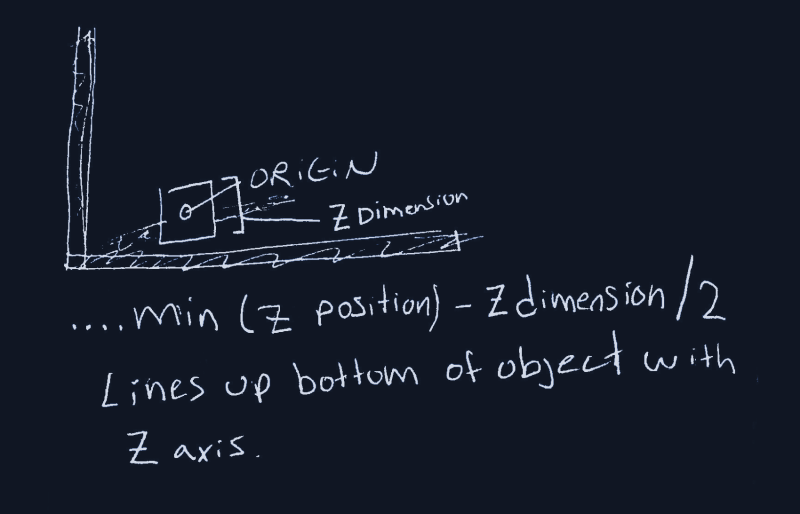 ORiGiN
Z Dimension
....min (Z position) - Z dimension/2
Lines up bottom of object with
Z axis.